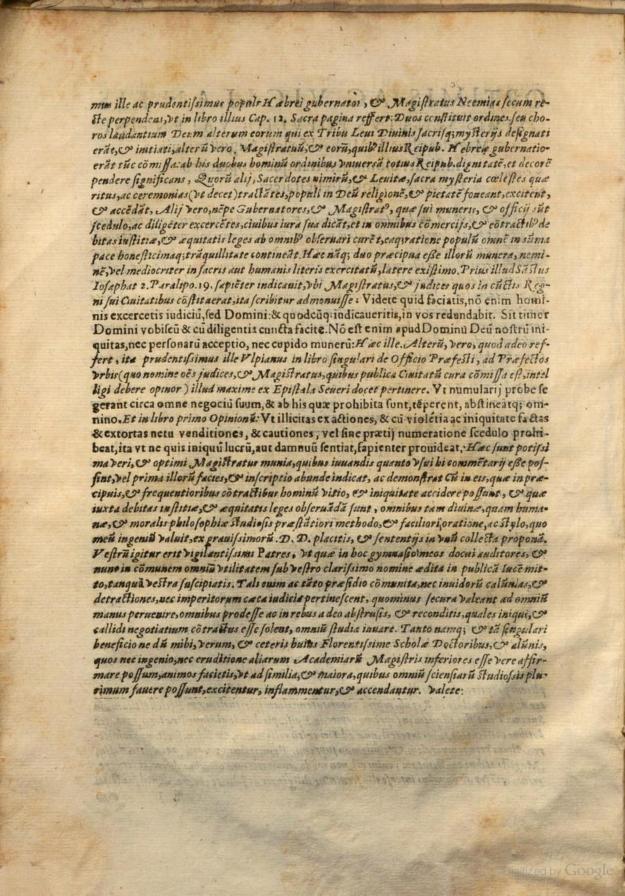 mus ille ac prudentissimus populi Hæbrei gubernator, & Magistratus Neemias secum re-
cte perpendens, vt in libro illius Cap. 12. Sacra pagina reffert: Duos constituit ordines, seu cho-
ros laudantium Deum alterum eorum qui ex Tribu Leui Diuinis sacrisq; mysterijs designati
erāt, & initiati, alterū vero Magistratuū, & eorū, quib⁹ illius Reipub. Hebreæ gubernatio-
erāt tūc cōmissa: ab his duobus hominū ordinibus vniuersā totius Reipub. dignitatē, et decorē
pendere significans, Quorū alij, Sacerdotes nimirū, & Leuitæ, sacra mysteria cœlestes quæ
ritus, ac ceremonias (vt decet) tractātes, populi in Deū religionē, & pietatē foueant, excitent,
& accēdāt, Alij vero, nēpe Gubernatores, & Magistrat⁹, quæ sui muneris, & officij sūt
scedulo, ac diligēter exercētes, ciuibus iura sua dicāt, et in omnibus cōmercijs, & cōtractib⁹ de
bitas iustitiæ, & æquitatis leges ab omnib⁹ obseruari curēt, eaq; ratione populū omnē in summa
pace honestissimaq; trāquillitate contineāt. Hæc nāq; duo præcipua esse illorū munera, nemi-
nē, vel mediocriter in sacris aut humanis literis exercitatū, latere existimo. Prius illud Sāctus
Iosaphat 2. Paralipo. 19. sapiēter indicauit, vbi Magistratus, & iudices quos in cūctis Reg-
ni sui Ciuitatibus cōstituerat, ita scribitur admonuisse: Videte quid faciatis, nō enim homi-
nis excercetis iudiciū, sed Domini: & quodcūq; indicaueritis, in vos redundabit. Sit timor
Domini vobiscū & cū diligentis cuncta facite. Nō est enim apud Dominū Deū nostrū ini-
quitas, nec personarū acceptio, nec cupido munerū: Hæc ille. Alterū, vero, quod adeo ref-
fert, ita prudentissimus ille Vlpianus in libro singulari de Officio Præfecti, ad Præfectos
vrbis (quo nomine oēs judices, & Magistratus, quibus publica Ciuitatū cura cōmissa est, intel
ligi debere opinor) illud maxime ex Epistola Seueri docet pertinere. Vt numularij probe se
gerant circa omne negociū suum, & ab his quæ prohibita sunt, tēperent, abstineatq; om-
nino. Et in libro primo Opinionū: Vt illicitas exactiones, & cū violētia ac iniquitate factas
& extortas netu venditiones, & cautiones, vel sine prætij numeratione scedulo prohi-
beat, ita vt ne quis iniquū lucrū, aut damnuū sentiat, sapienter prouideat: Hæc sunt potissi
ma veri, & optimi Magistratur munia, quibus iuuandis quanto vsui hi commētarij esse pos-
sint, vel prima illorū facies, & inscriptio abunde indicat, ac demonstrat cū in eis, quæ in præ-
cipuis, & frequentioribus cōtractibus hominū vitio, & iniquitate accidere possunt, & quæ
iuxta debitas iustitiæ, & æquitatis leges obseruādā sunt, omnibus tam diuinæ, quam huma-
næ, & moralis philosophiæ studiosis præstātiori methodo, & faciliori, oratione, ac stylo, quo
meū ingeniū valuit, ex grauissimorū .D.D. placitis, & sententijs in vnū collecta proponā.
Vestrū igitur erit vigilantissimi Patres, vt quæ in hoc gymnasio meos docui auditores, &
nunc in cōmunem omniū vtilitatem sub vestro clarissimo nomine ædita in publicā lucē mit-
to, tanquā vestra suscipiatis. Tali enim ac tāto præsidio cōmunita, nec inuidorū calūnias, &
detractiones, nec imperitorum cæca iudicia pertinescent, quominus secura valeant ad omniū
manus peruenire, omnibus prodesse ac in rebus adeo abstrusis, & reconditis, quales iniqui, &
callidi negotiatium cōtractus esse solent, omniū studia iuuare. Tanto namq; & tā singulari
beneficio ne dū mihi, verum, & ceteris huius Florentissime Scholæ Doctoribus, & alūnis,
quos nec ingenio, nec eruditione aliarum Academiarū Magistris inferiores esse vere affir-
mare possum, animos facietis, vt ad similia, & maiora, quibus omniū scienciarū studiosis plu-
rimum fauere possunt, excitentur, inflammentur, & accendantur. Valete.
Digitized by Google